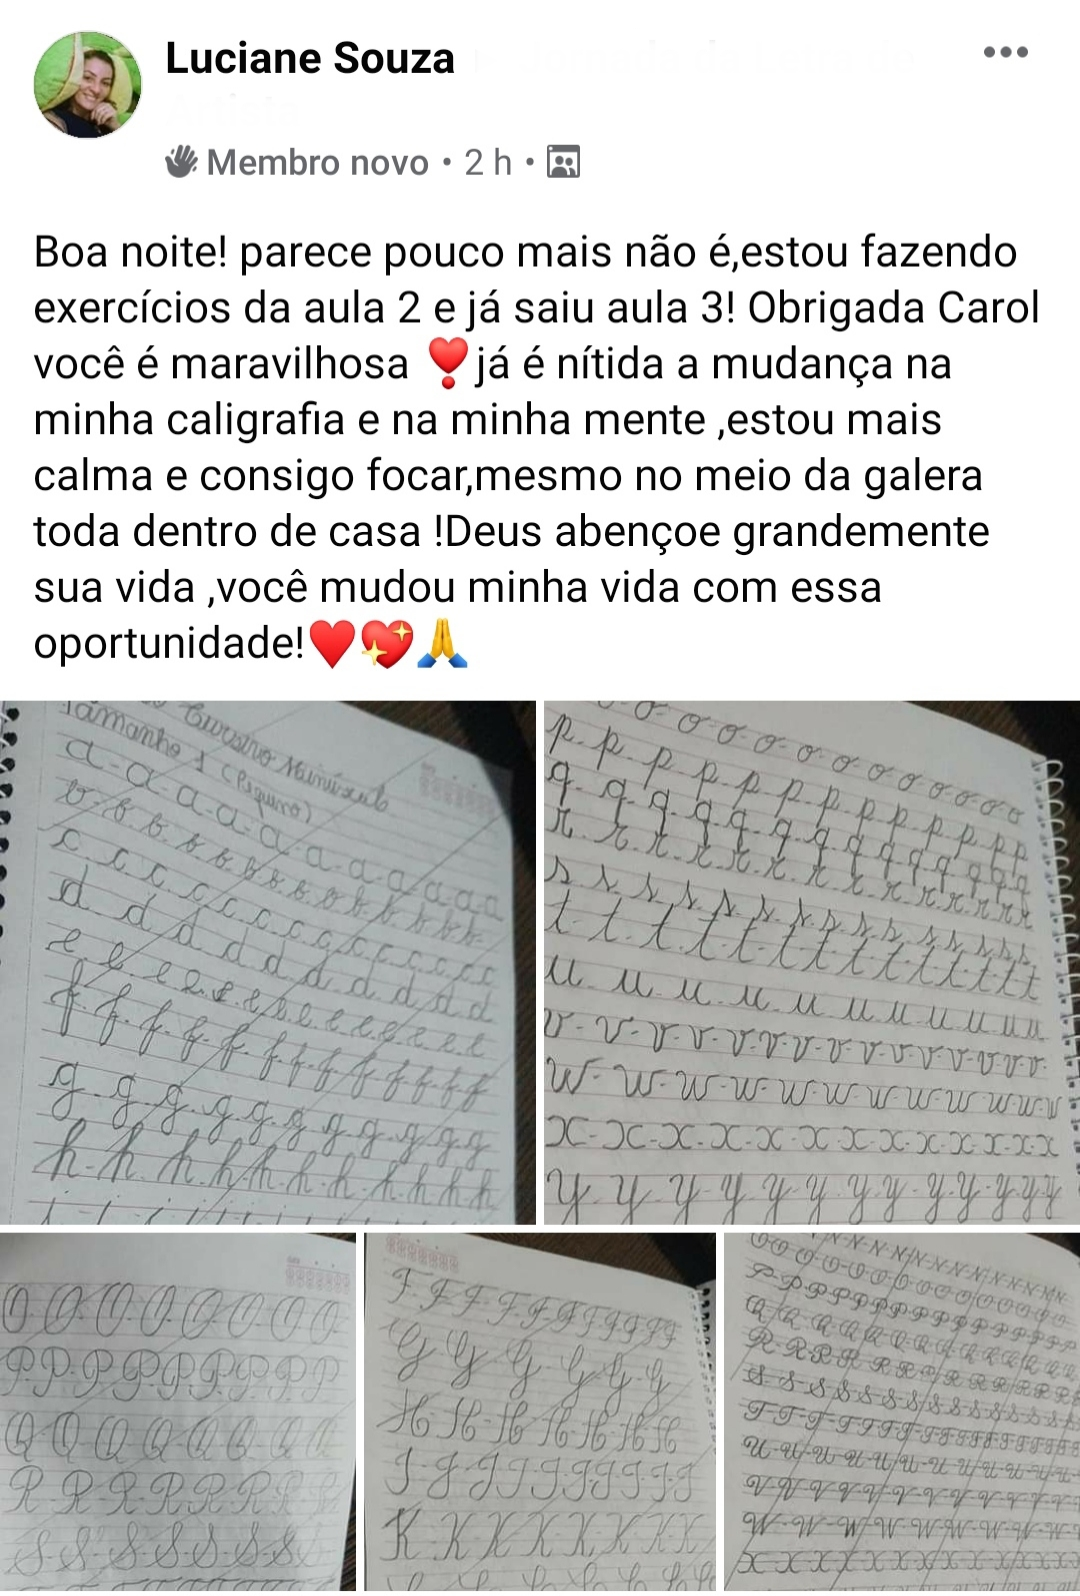 Luciane Souza
Membro novo • 2 h •
Boa noite! parece pouco mais não é,estou fazendo
exercícios da aula 2 e já saiu aula 3! Obrigada Carol
você é maravilhosa ❣️já é nítida a mudança na
minha caligrafia e na minha mente ,estou mais
calma e consigo focar,mesmo no meio da galera
toda dentro de casa !Deus abençoe grandemente
sua vida ,você mudou minha vida com essa
oportunidade!♥️💖🙏
Cursivo Minúsculo
Tamanho 1 (Pequeno)
a-a-a-a-a-a-a-a-a-a-a-a
b-b-b-b-b-b-b-b-b-b-b-b-b
c-c-c-c-c-c-c-c-c-c-c-c-c
d d d d d d d d d d d
e e e e e e e e e e e e e
f-f-f-f-f-f-f-f-f-f-f-f
g-g-g-g-g-g-g-g-g-g-g
h-h-h-h-h-h-h-h-h-h-h
o-o-o-o-o-o-o-o-o-o-o-o
p-p-p-p-p-p-p-p-p-p-p-p-p
q-q-q-q-q-q-q-q-q-q-q-q-q
r-r-r-r-r-r-r-r-r-r-r-r-r
s-s-s-s-s-s-s-s-s-s-s-s-s
t-t-t-t-t-t-t-t-t-t-t-t-t
u-u-u-u-u-u-u-u-u-u-u-u
v-v-v-v-v-v-v-v-v-v-v-v-v
w-w-w-w-w-w-w-w-w-w-w-w
x-x-x-x-x-x-x-x-x-x-x-x-x
y-y-y-y-y-y-y-y-y-y-y-y
O-O-O-O-O-O-O-O
P-P-P-P-P-P-P-P-P
Q-Q-Q-Q-Q-Q-Q-Q
R-R-R-R-R-R-R-R
S-S-S-S-S-S-S-S
F-F-F-F-F-F-F-F-F-F-F
G-G-G-G-G-G-G
H-H-H-H-H-H-H
I-I-I-I-I-I-I-I-I
K-K-K-K-K-K-K-K
N-N-N-N-N-N-N-N-N-N-N
O-O-O-O-O-O-O-O-O-O-O-O
P-P-P-P-P-P-P-P-P-P-P-P-P
Q-Q-Q-Q-Q-Q-Q-Q-Q-Q-Q
R-R-R-R-R-R-R-R-R-R-R
S-S-S-S-S-S-S-S-S-S-S-S
T-T-T-T-T-T-T-T-T-T-T-T
U-U-U-U-U-U-U-U-U-U-U
V-V-V-V-V-V-V-V-V-V-V-V
W-W-W-W-W-W-W-W-W-W
X-X-X-X-X-X-X-X-X-X-X